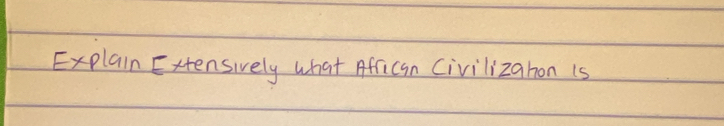 Explain Extensively what African Civilization is